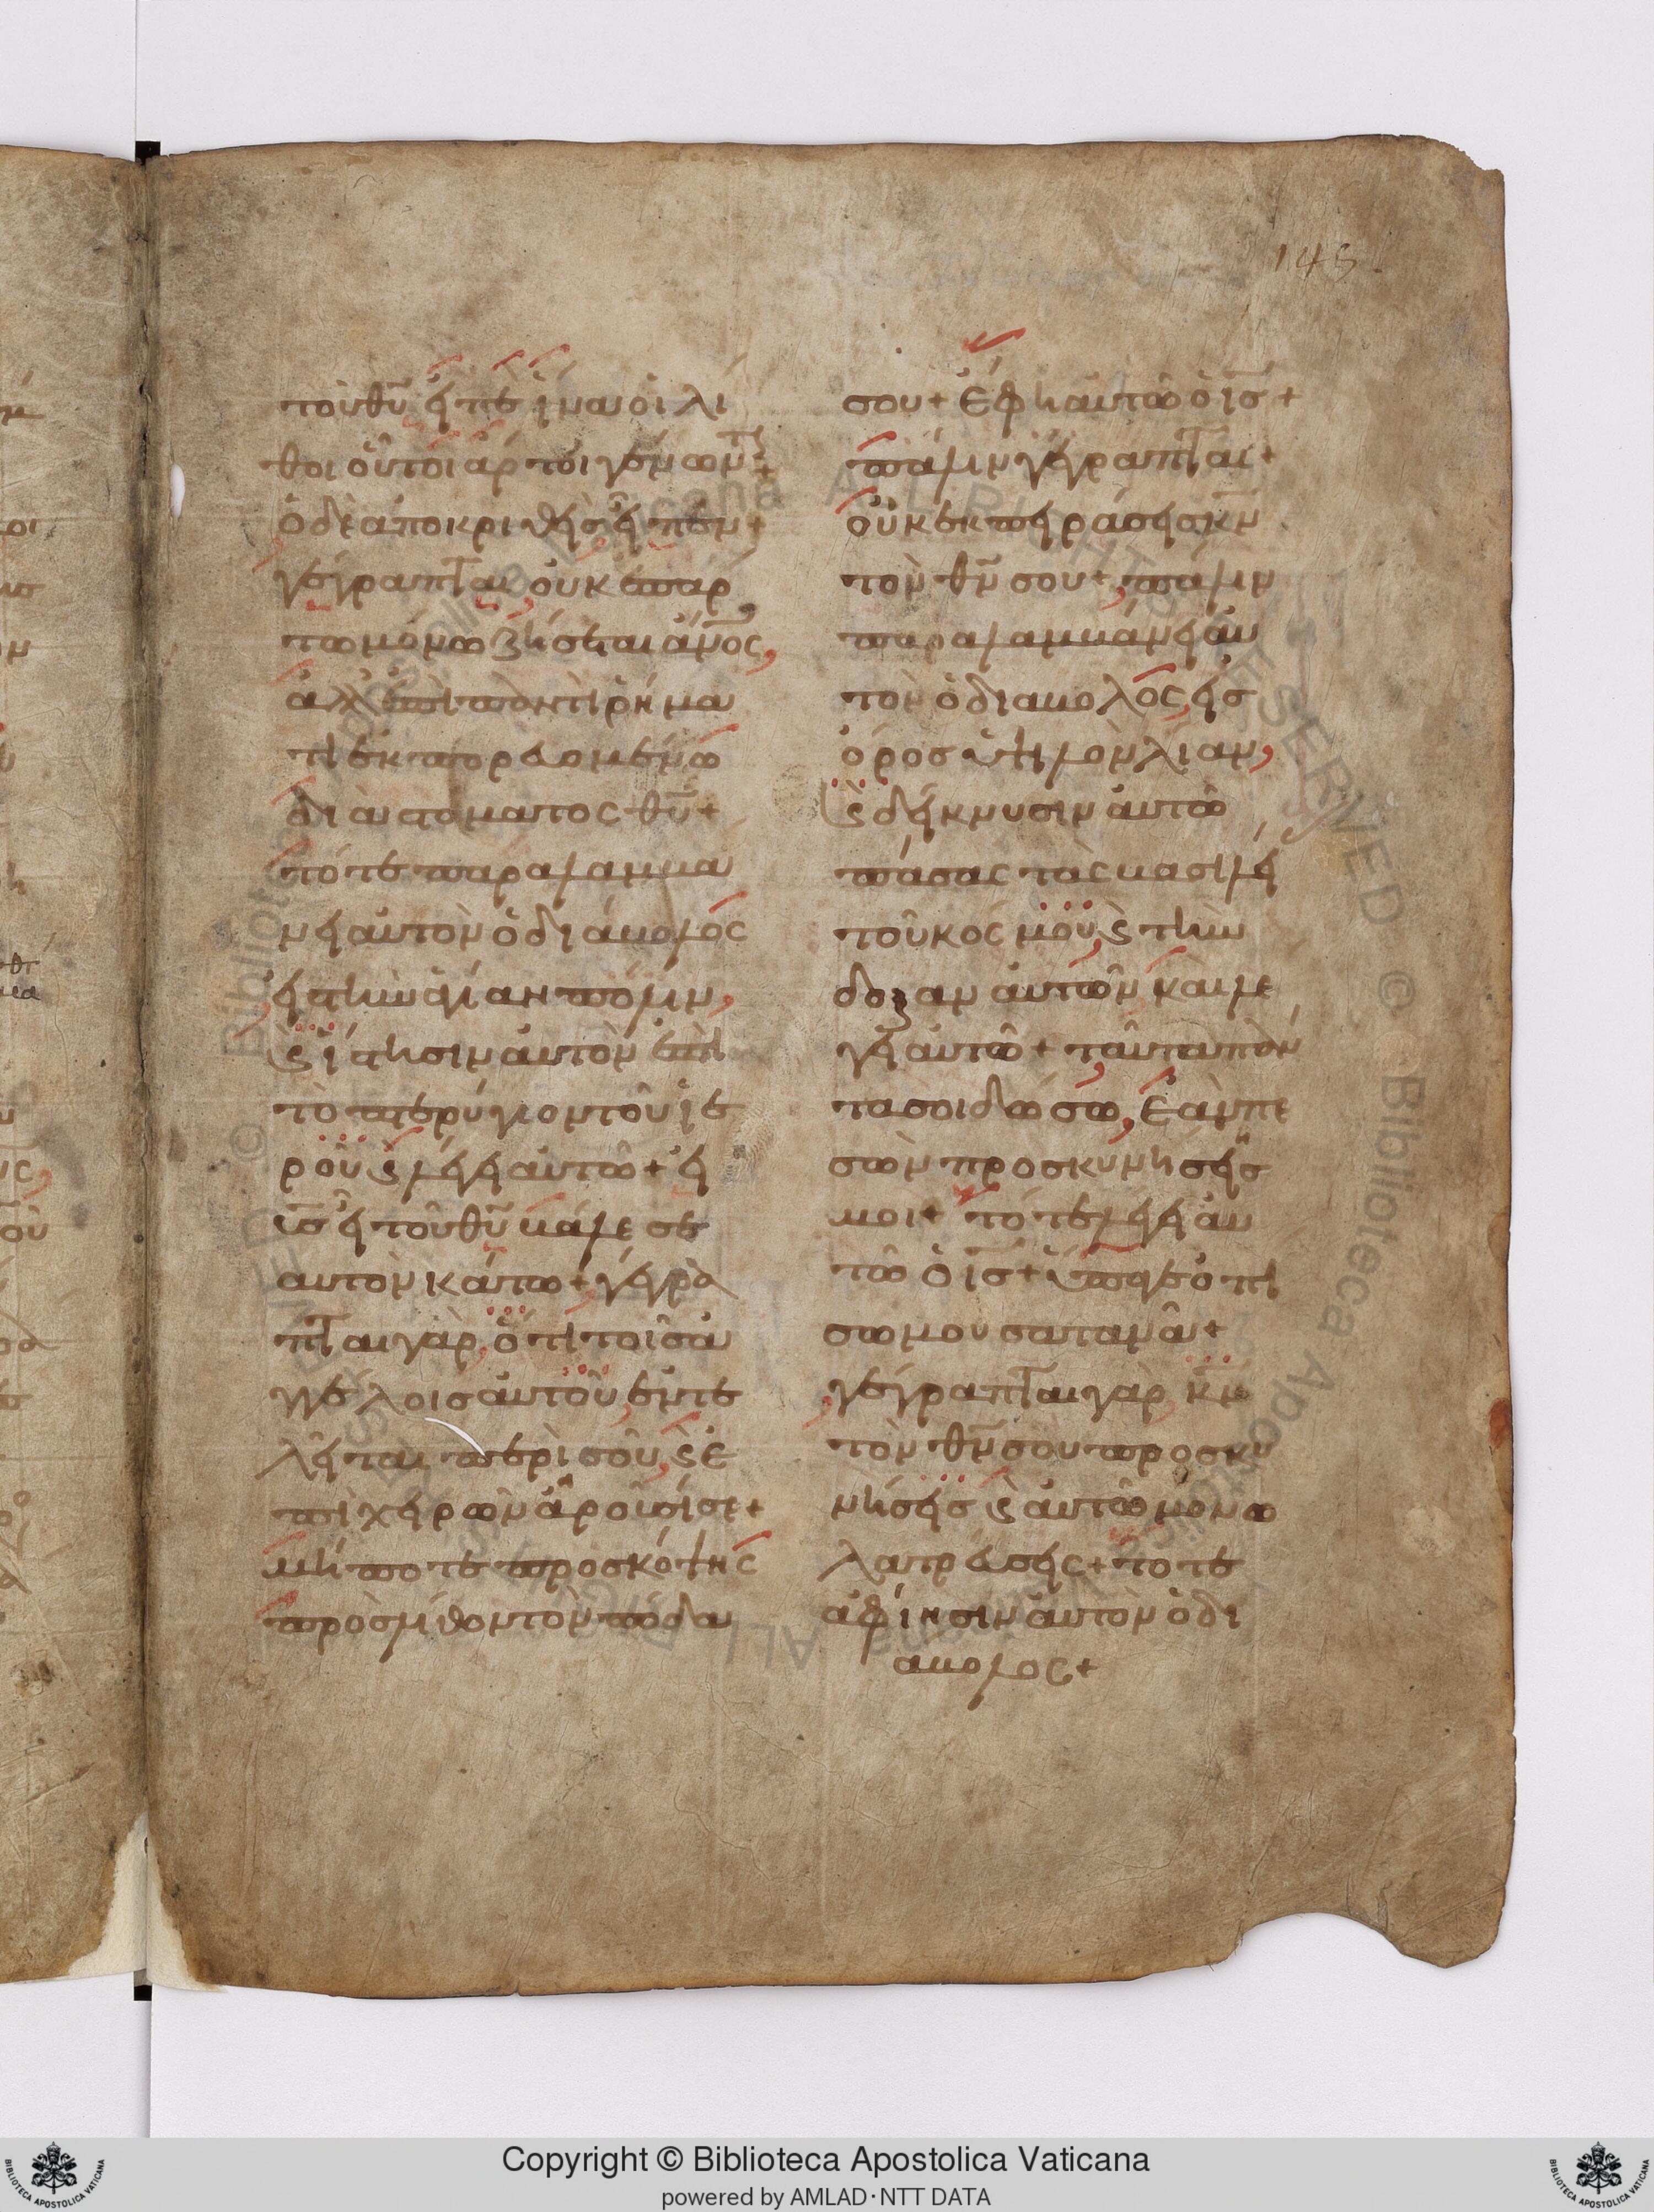 145
τοῦ θῦ εἰπὲ ἵνα οἱ λί
θοι οὗτοι ἄρτοι γένων̅τ̅+
ὁ δὲ ἀποκριθεὶς εἶπεν+
γέγραπται οὐκ ἐπ' ἄρ
τω μόνω ζήσεται ἄν̅ο̅ς,
ἀλλ' ἐπὶ παντὶ ρήμα
τι ἐκπορευομένω
διὰ στόματος θῦ+
τότε παραλαμβά
νει αὐτὸν ὁ διάβολος
εἰς τὴν ἁγίαν πόλιν,
ϛ ἵστησιν αὐτὸν ἐπὶ
τὸ πτερύγιον τοῦ ἱε
ροῦ ϛ λέγει αὐτῶ+ εἰ
υ̅ς̅ εἶ τοῦ θῦ βάλε σε
αυτὸν κάτω+ γέγρα
πται γὰρ, ὅτι τοῖς ἀγ
γέλοις αὐτοῦ ἐντε
λεῖται περὶ σοῦ, ϛ ἐ
πὶ χειρῶν ἀροῦσί σε+
μήποτε προσκόψης
πρὸς λίθον τὸν πόδα
σου+ ἔφη αὐτῶ ὁ ι̅ς̅+
πάλιν γέγραπται+
οὐκ ἐκπειράσεις κ̅ν̅
τὸν θ̅ν̅ σου+, πάλιν
παραλαμβάνει αὐ
τὸν ὁ διάβολος, εἰς
ὄρος ὑψηλὸν λίαν,
ϛ δείκνυσιν αὐτῶ
πάσας τὰς βασιλεί
τοῦ κόσμου, ϛ τὴν
δόξαν αὐτῶν καὶ λέ
γει αὐτῶ+ ταῦτα πάν
τα σοι δώσω, ἐὰν πε
σὼν προσκυνήσεις
μοι+ τότε λέγει αὐ
τῶ ὁ ι̅ς̅+ ὕπαγε ὀπί
σω μου σατανᾶ+
γέγραπται γὰρ κ̅ν̅
τὸν θ̅ν̅ σου προσκυ
νήσεις ϛ αὐτῶ μόνω
λατρεύσεις+ τότε
ἀφίησιν αὐτὸν ὁ δι
άβολος+
Copyright © Biblioteca Apostolica Vaticana
powered by AMLAD·NTT DATA